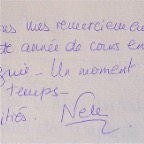 ous mes remerciemen
te année de cours en
gnie - Un moment
temps -
itiés. Nele